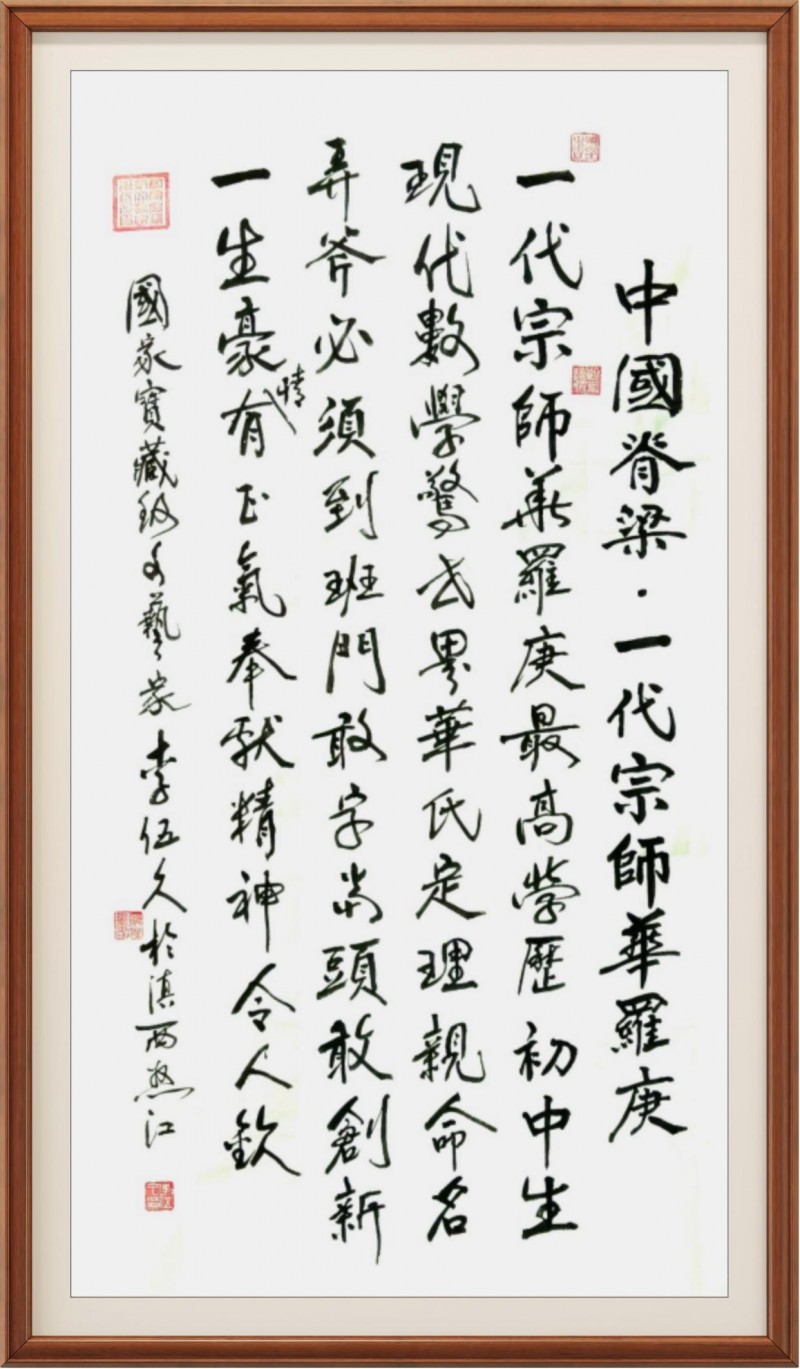 中國脊梁·一代宗師華羅庚
一代宗師華羅庚最高學歷初中生
現代數學驚世界華氏定理親命名
弄斧必須到班門敢字當頭敢創新
一生豪情有正氣奉献精神令人欽
國家寶藏級文藝家李伍久於滇西怒江